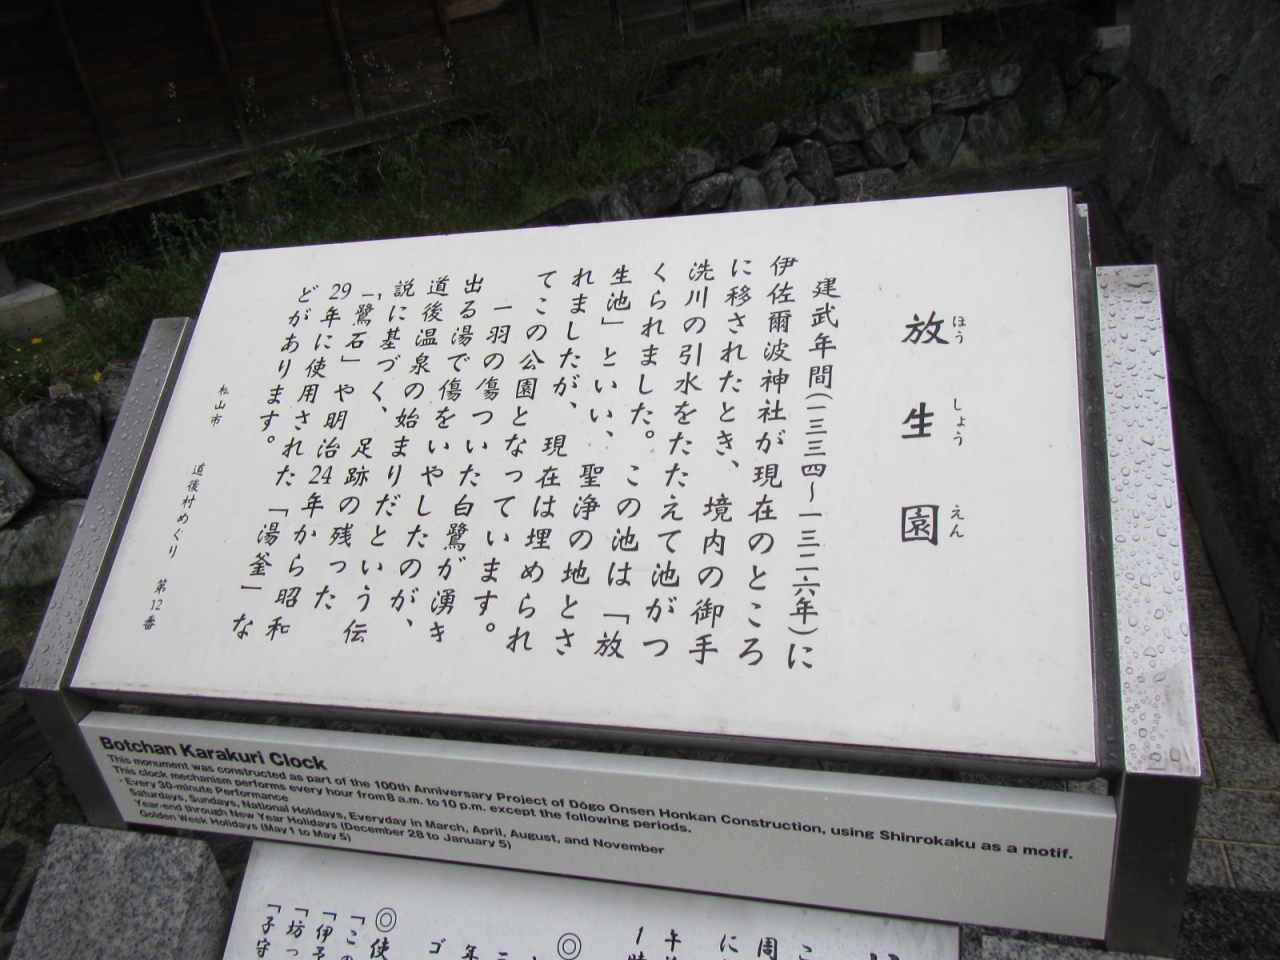 放生園
ほうしょうえん
建武年間(一三三四〜一三三六年)に
伊佐爾波神社が現在のところ
に移されたとき、境内の御手
洗川の引水をたたえて池がつ
くられました。この池は「放
生池」といい、聖浄の地とさ
れましたが、現在は埋められ
てこの公園となっています。
一羽の傷ついた白鷺が湧き
出る湯で傷をいやしたのが、
道後温泉の始まりだという伝
説に基づく、足跡の残った
「鷺石」や明治24年から昭和
29年に使用された「湯釜」な
どがあります。
松山市 道後村めぐり 第12番
Botchan Karakuri Clock
This monument was constructed as part of the 100th Anniversary Project of Dōgo Onsen Honkan Construction, using Shinrokaku as a motif.
This clock mechanism performs every hour from 8 a.m. to 10 p.m. except the following periods.
・Every 30-minute Performance
Saturdays, Sundays, National Holidays, Everyday in March, April, August, and November
Year-end through New Year Holidays (December 28 to January 5)
Golden Week Holidays (May 1 to May 5)
◎
◎使
「この
「伊予
「坊っ
「子守